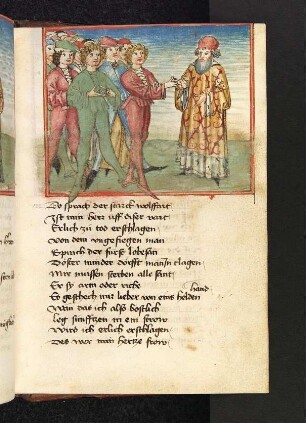 Do sprach der starck wolfhart
Ist min herr uff diser vart
Erlich zu tod erschlagen
Von dem ungefiegen man
Sprach der fürst lobesan
Dester minder dörfft man in clagen
Wir mussen sterben alle sant
Er sy arm oder riche
hand
So geschech mir lieber von eins helden
Wan das ich also bostlich
leg sunfftzen in ein
wird ich erlich erschlagen
Des wer mim hertze frow